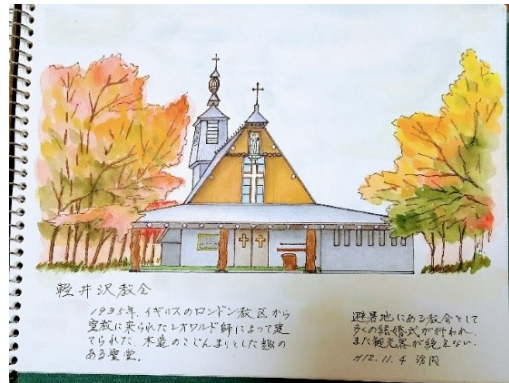 軽井沢教会
1935年、イギリスのロンドン教区から
宣教に来られたレオワルド師によって建
てられた、木造のこじんまりとした趣の
ある聖堂。
避暑地にある教会として
多くの結婚式が行われ、
また観光客が絶えない。
H12.11.4